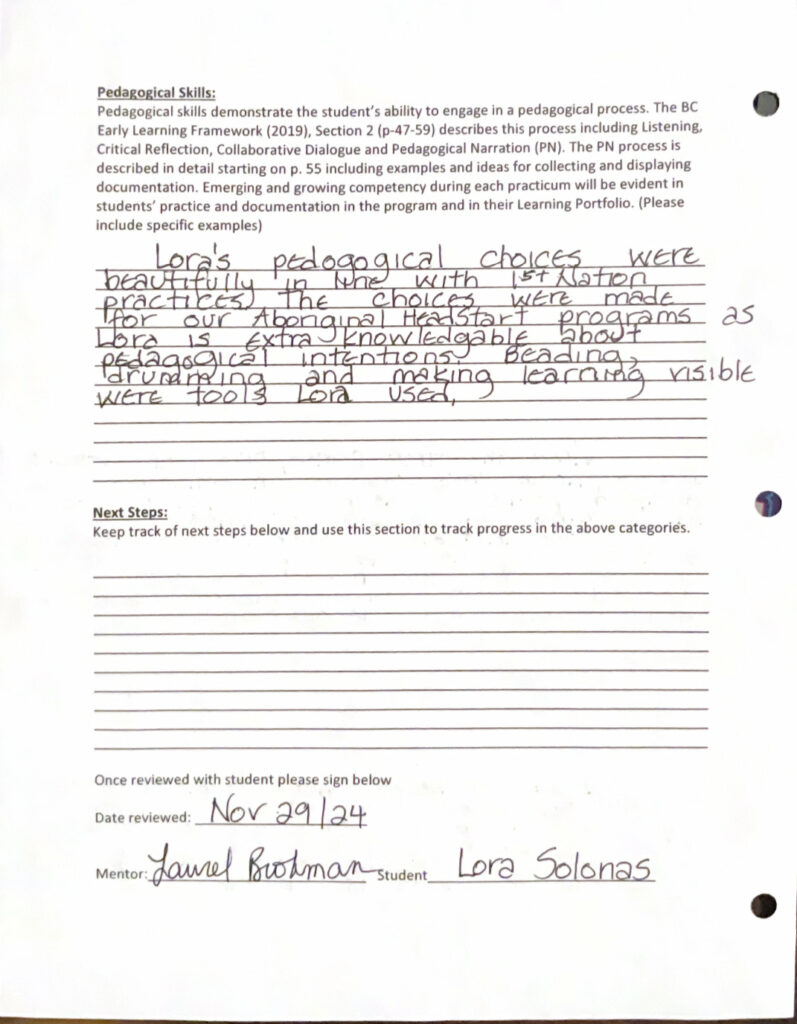 Pedagogical Skills:
Pedagogical skills demonstrate the student's ability to engage in a pedagogical process. The BC
Early Learning Framework (2019), Section 2 (p-47-59) describes this process including Listening,
Critical Reflection, Collaborative Dialogue and Pedagogical Narration (PN). The PN process is
described in detail starting on p. 55 including examples and ideas for collecting and displaying
documentation. Emerging and growing competency during each practicum will be evident in
students' practice and documentation in the program and in their Learning Portfolio. (Please
include specific examples)
Lora's pedogogical choices were
beautifully in line with 1st Nation
practices. The choices were made
for our Aboriginal HeadStart programs as
Lora is extra knowledgable about
pedagogical intentions. Beading,
drumming and making learning visible
were tools Lora used.
Next Steps:
Keep track of next steps below and use this section to track progress in the above categories.
Once reviewed with student please sign below
Date reviewed: Nov 29/24
Mentor: Laurel Brohman Student Lora Solonas